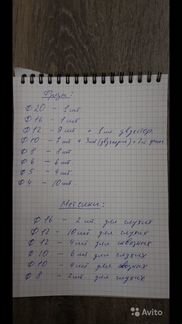 Фрезы:
Ф 20 – 1 шт
Ф 16 – 1 шт
Ф 12 – 9 шт + 1 шт.
Ф 10 – 7 шт + 3 шт
Ф 8 – 8 шт
Ф 6 – 6 шт.
Ф 5 – 4 шт
Ф 4 – 10 шт.
Метчики:
Ф 16 – 2 шт для глухих
Ф 12 – 10 шт для глухих
Ф 12 – 4 шт для сквозных
Ф 10 – 6 шт для глухих
Ф 10 – 4 шт для сквозных
Ф 8 – 2 шт для глухих
Avito